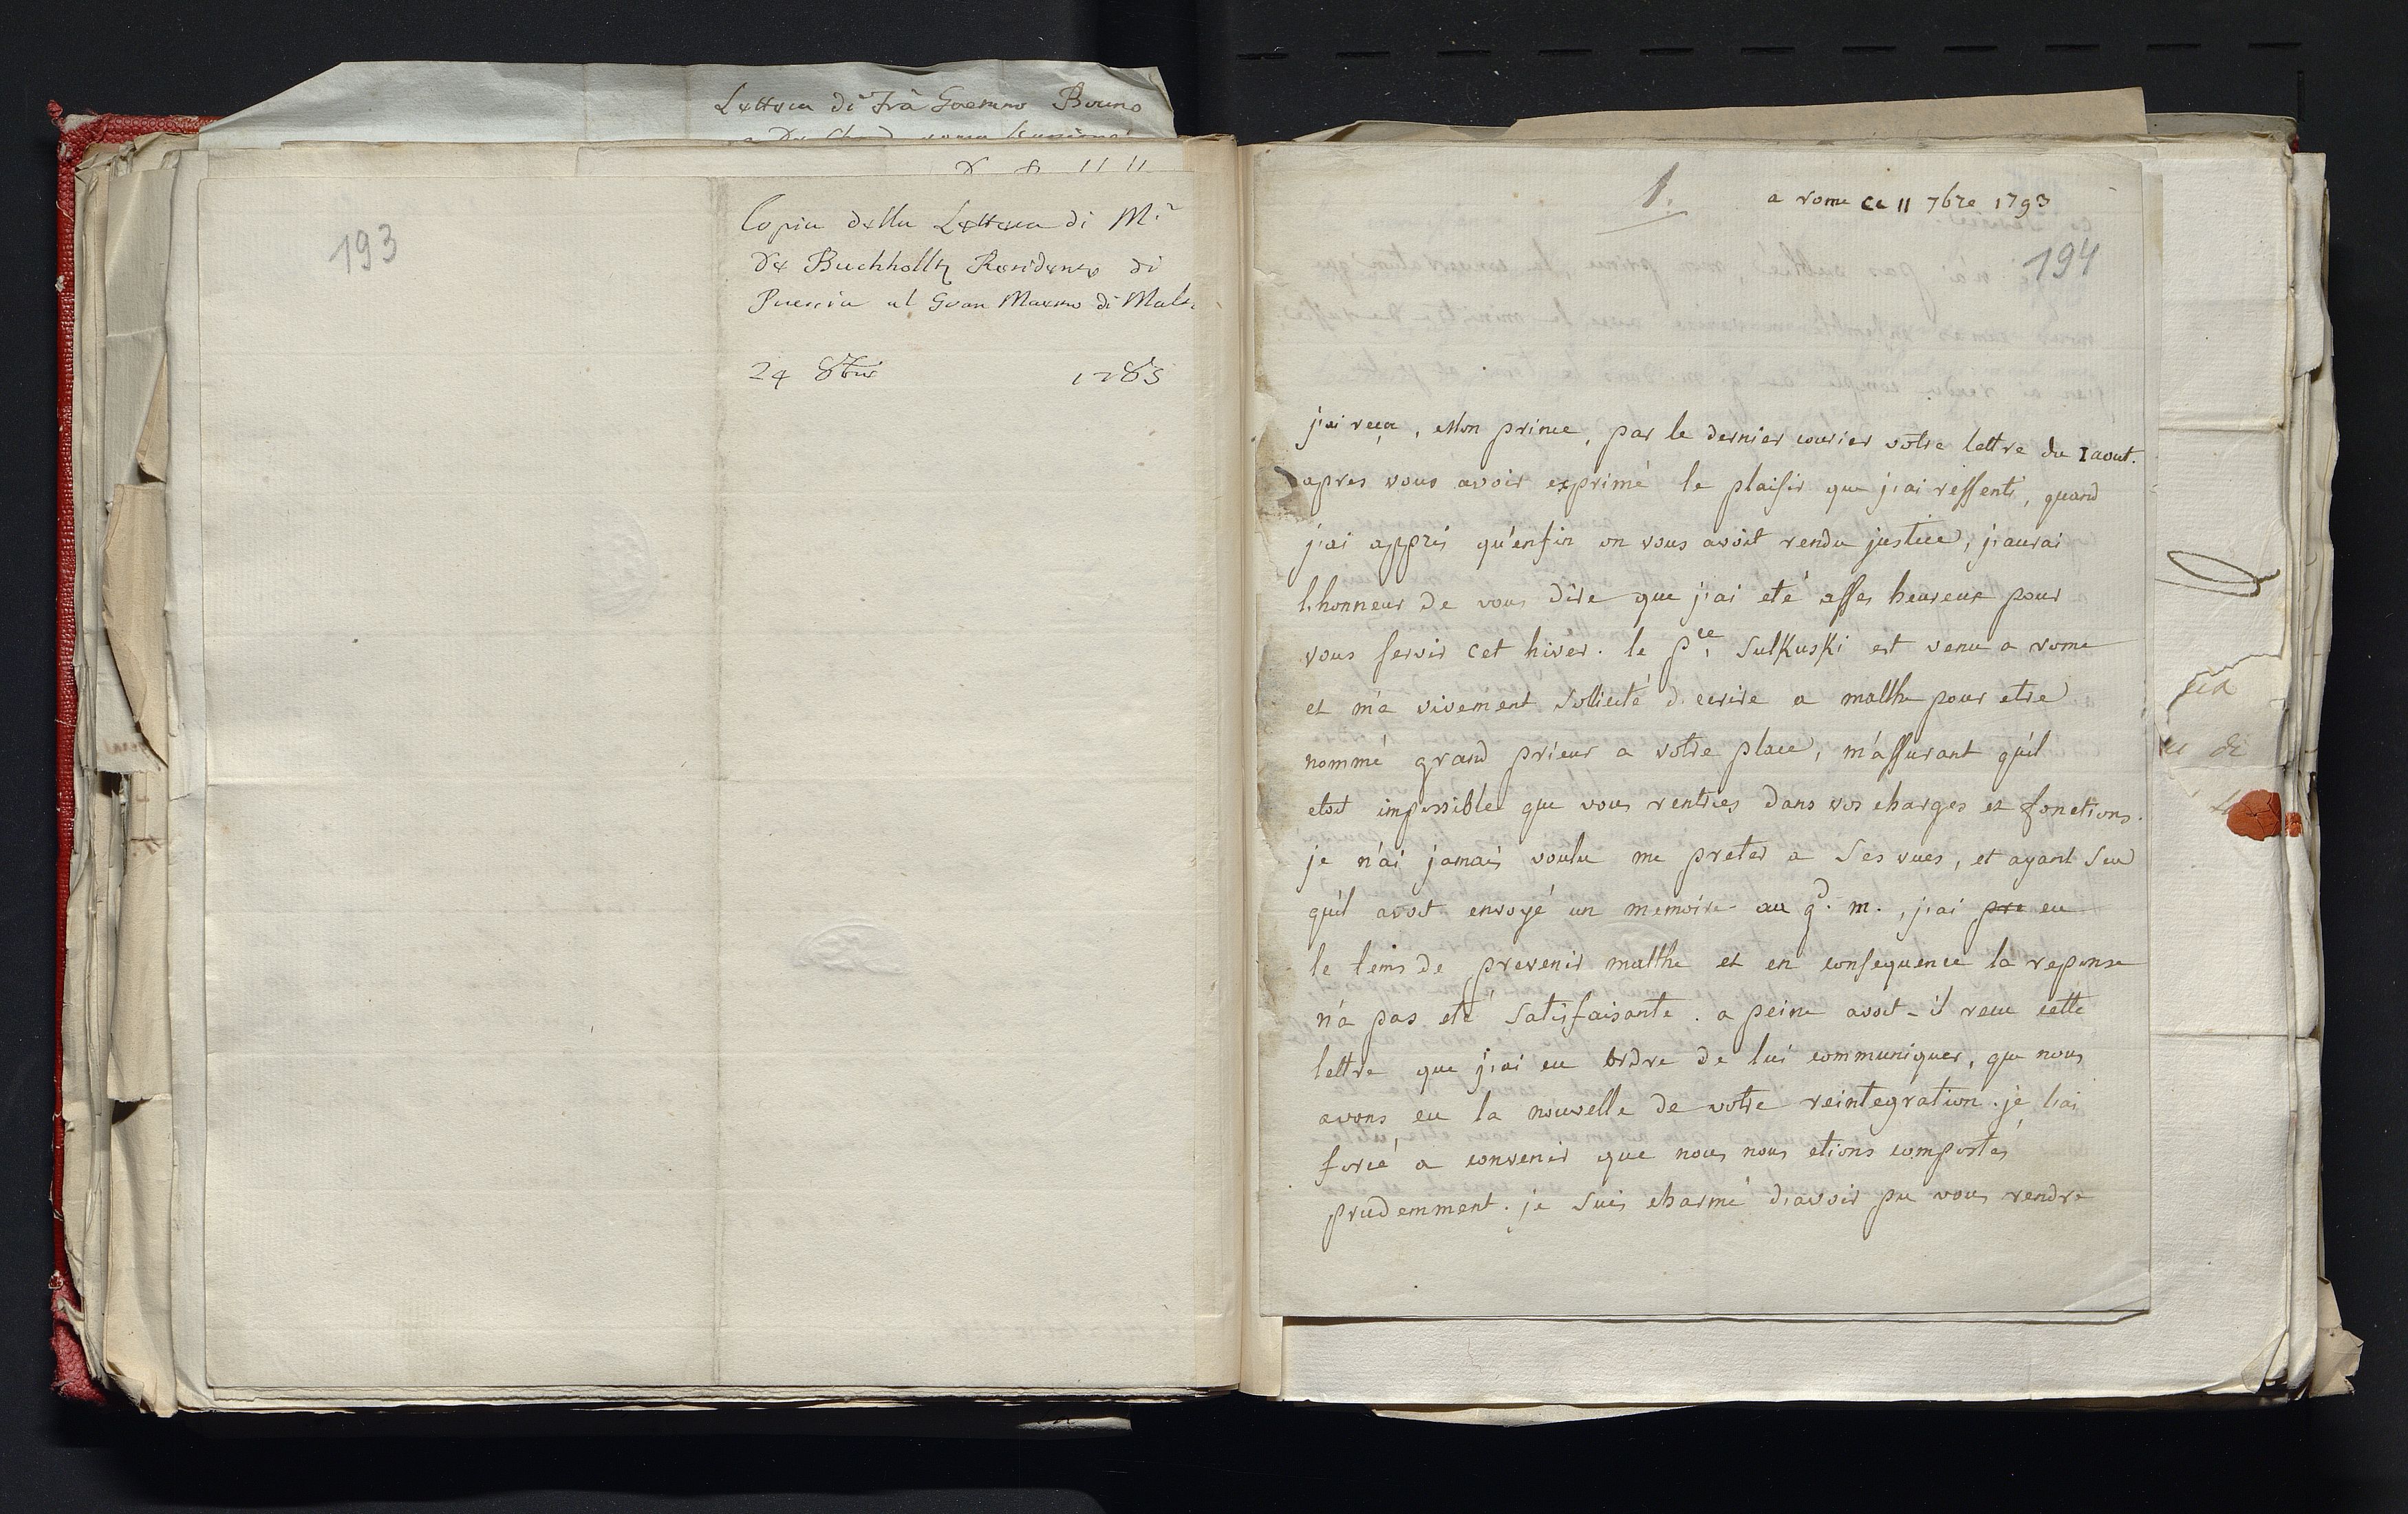 Lettera di Frà Gaetano Bruno
193
Copia della Lettera di M.r
De Buchholtz Residente di
Prussia al Gran Maestro di Malta
24 8bre 1785
1.
a rome ce 11 7bre 1793
194
j'ai reçu, Mon prince, par le dernier courier votre lettre du 1 aout.
apres vous avoir exprimé le plaisir que j'ai ressenti, quand
j'ai appris qu'enfin on vous avoit rendu justice, j'aurai
l'honneur de vous dire que j'ai eté asses heureux pour
vous servir cet hiver. le p.ce Sulkuski est venu a rome
et m'a vivement sollicité d'ecrire a malthe pour etre
nommé grand prieur a votre place, m'assurant qu'il
etoit impossible que vous rentries dans vos charges et fonctions.
je n'ai jamais voulu me preter a ses vues, et ayant seu
qu'il avoit envoyé un memoire au g.d m., j'ai pre eu
le tems de prevenir malthe et en consequence la reponse
n'a pas eté satisfaisante. a peine avoit-il reçu cette
lettre que j'ai eu ordre de lui communiquer, que nous
avons eu la nouvelle de votre reintegration. je l'ai
forcé a convenir que nous nous etions comportés
prudemment. je suis charmé d'avoir pu vous rendre
di